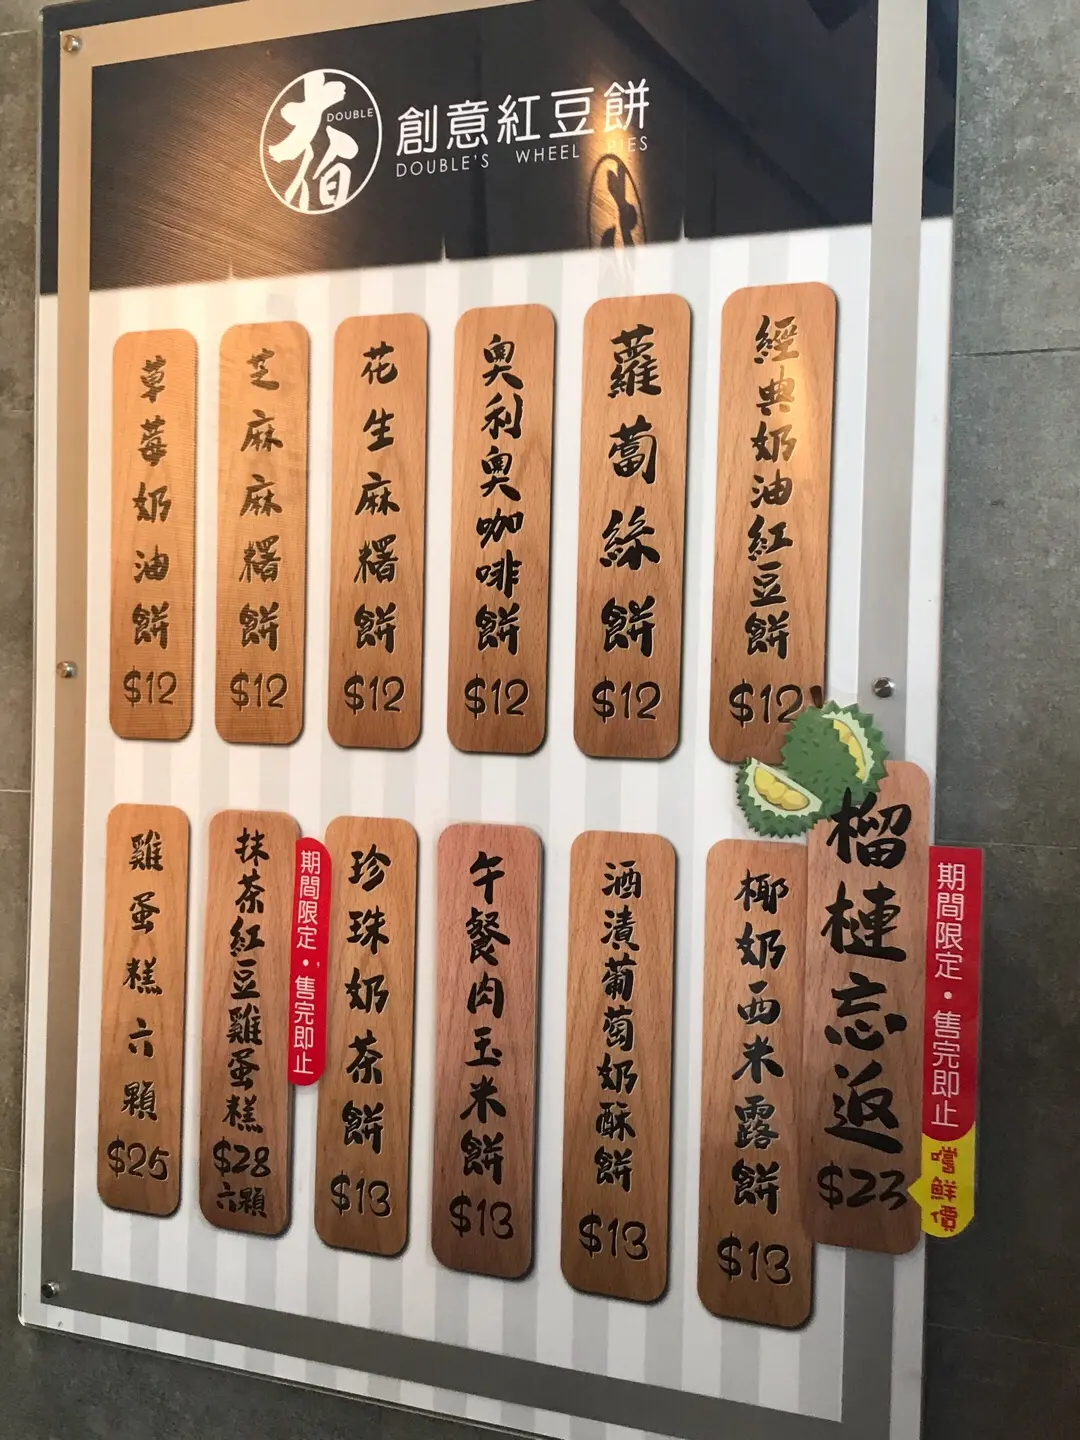 大伯
DOUBLE
創意紅豆餅
DOUBLE'S WHEEL PIES
經典奶油紅豆餅
$12
蘿蔔絲餅
$12
奧利奧咖啡餅
$12
花生麻糬餅
$12
芝麻麻糬餅
$12
草莓奶油餅
$12
榴槤忘返
$23
期間限定・售完即止
嚐鮮價
椰奶西米露餅
$13
酒漬葡萄奶酥餅
$13
午餐肉玉米餅
$13
珍珠奶茶餅
$13
期間限定・售完即止
抹茶紅豆雞蛋糕
$28
六顆
雞蛋糕六顆
$25